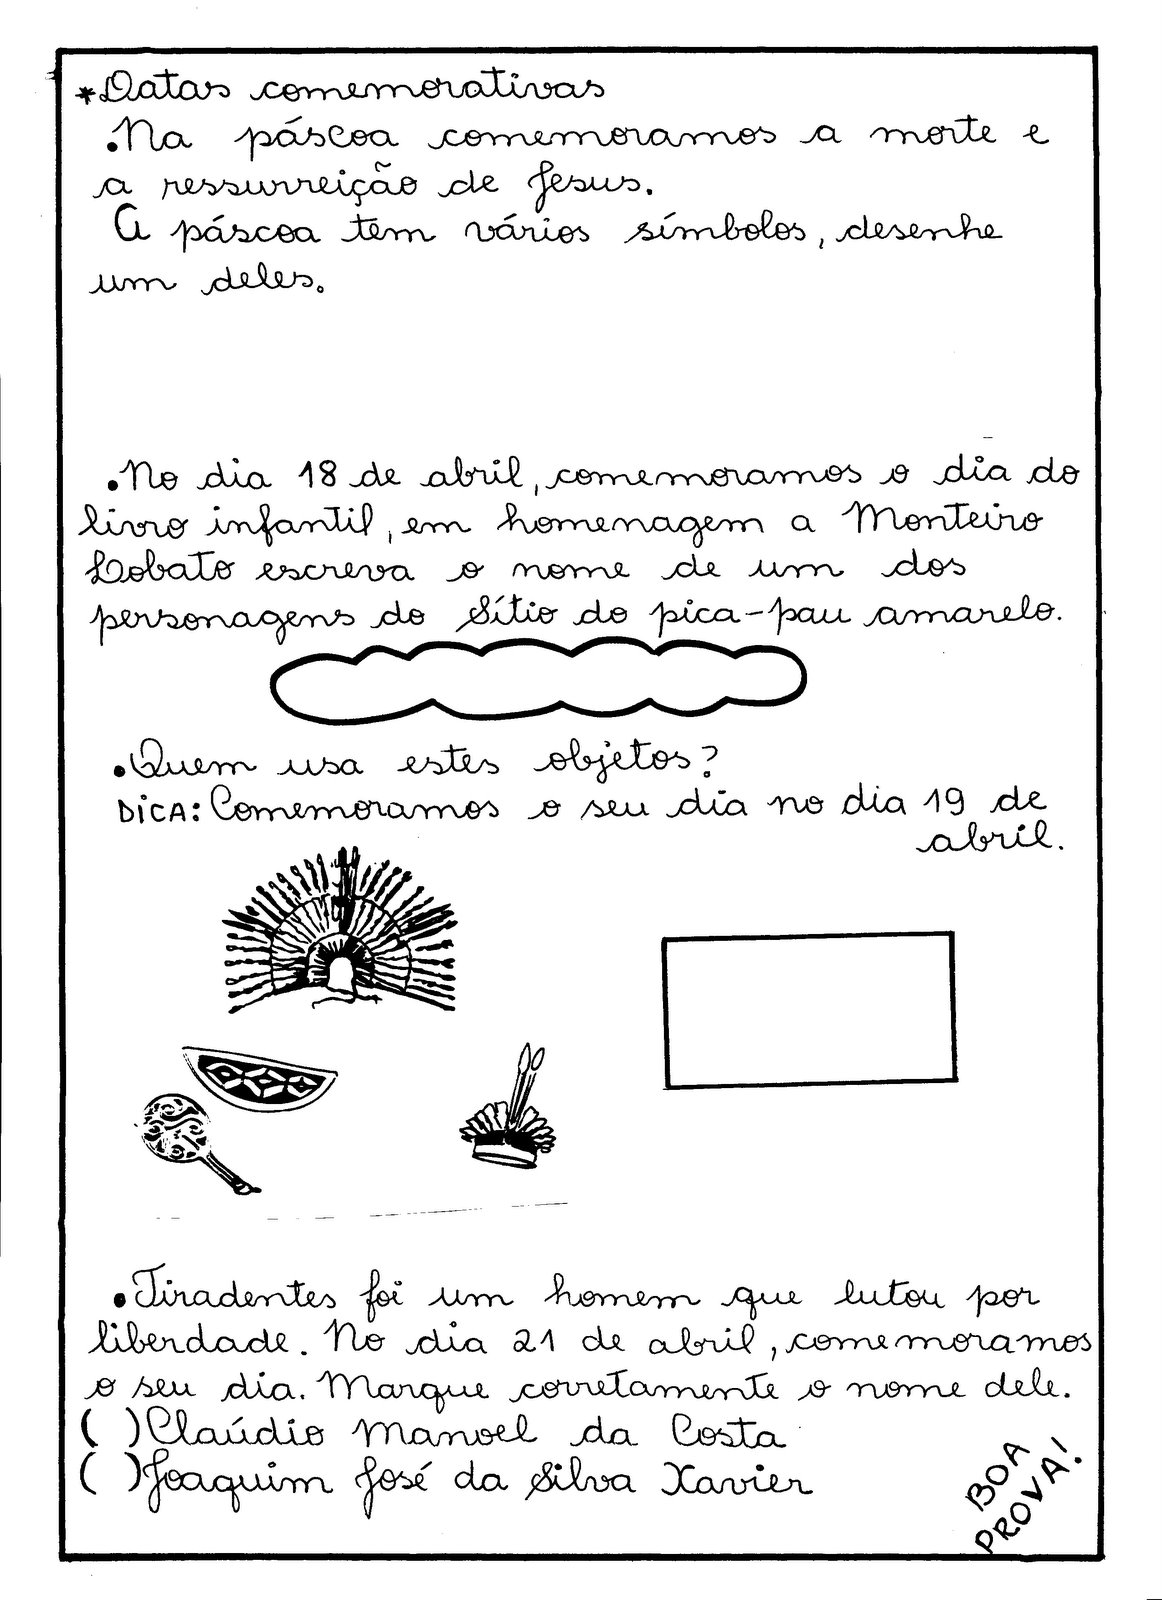 *Datas comemorativas
•Na páscoa comemoramos a morte e
a ressurreição de Jesus.
A páscoa tem vários símbolos, desenhe
um deles.
•No dia 18 de abril, comemoramos o dia do
livro infantil, em homenagem a Monteiro
Lobato escreva o nome de um dos
personagens do Sítio do pica-pau amarelo.
•Quem usa estes objetos?
DICA: Comemoramos o seu dia no dia 19 de
abril.
•Tiradentes foi um homem que lutou por
liberdade. No dia 21 de abril, comemoramos
o seu dia. Marque corretamente o nome dele.
( )Claúdio Manoel da Costa
( )Joaquim José da Silva Xavier
BOA
PROVA!